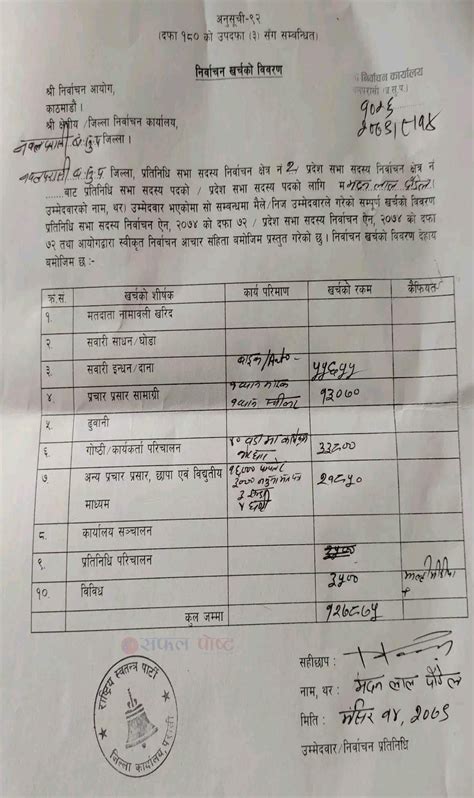 अनुसूची-१२
(दफा १८० को उपदफा (३) संग सम्बन्धित)
निर्वाचन खर्चको विवरण
श्री निर्वाचन आयोग,
निर्वाचन कार्यालय
काठमाडौं ।
श्री क्षेत्रीय /जिल्ला निर्वाचन कार्यालय,
जिल्ला ।
जिल्ला, प्रतिनिधि सभा सदस्य निर्वाचन क्षेत्र नं 2 प्रदेश सभा सदस्य निर्वाचन क्षेत्र नं
......... बाट प्रतिनिधि सभा सदस्य पदको / प्रदेश सभा सदस्य पदको लागि म मदन लाल पौडेल
उम्मेदवारको नाम, थर) उम्मेदवार भएकोमा सो सम्बन्धमा मैले/निज उम्मेदवारले गरेको सम्पूर्ण खर्चको विवरण
प्रतिनिधि सभा सदस्य निर्वाचन ऐन, २०७४ को दफा ७२ / प्रदेश सभा सदस्य निर्वाचन ऐन, २०७४ को दफा
७२ तथा आयोगद्वारा स्वीकृत निर्वाचन आचार संहिता बमोजिम प्रस्तुत गरेको छु । निर्वाचन खर्चको विवरण देहाय
बमोजिम छ :-
क्र.सं. खर्चको शीर्षक कार्य परिमाण खर्चको रकम कैफियत
१. मतदाता नामावली खरिद
२. सवारी साधन/घोडा
३ सवारी इन्धन/दाना बाइक/Auto ५५६५५
४ प्रचार प्रसार सामाग्री १३०७०
५ ढुवानी
६ गोष्ठी/कार्यकर्ता परिचालन ३३८००
७ अन्य प्रचार प्रसार, छापा एवं विद्युतीय माध्यम २१८५०
८ कार्यालय सञ्चालन
९ प्रतिनिधि परिचालन
१०. विविध ३५००
कुल जम्मा १२७८७५
सफल पोष्ट
सहीछाप :
नाम, थर : मदन लाल पौडेल
मिति : मंसिर १४, २०७९
उम्मेदवार/निर्वाचन प्रतिनिधि
राष्ट्रिय स्वतन्त्र पार्टी
जिल्ला कार्यालय, परासी